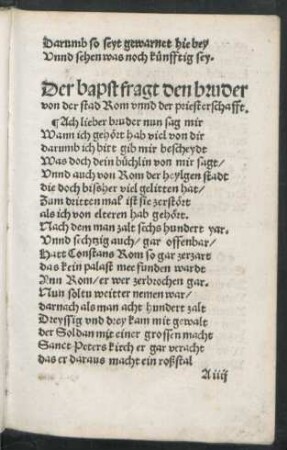 Darumb so seyt gewarnet hie bey
Vnnd sehen was noch künfftig sey.
Der bapst fragt den bruder
von der stad Rom vnnd der priesterschafft.
¶ Ach lieber bruder nun sag mir
Wann ich gehört hab viel von dir
darumb ich bitt gib mir bescheydt
Was doch dein büchlin von mir sagt/
Vnnd auch von Rom der heylgen stadt
die doch bißher viel gelitten hat/
Zum dritten mal ist sie zerstört
als ich von elteren hab gehört.
Nach dem man zalt sechs hundert yar.
Vnnd sechtzig auch/ gar offenbar/
Hatt Constans Rom so gar zerzart
das kein palast mee funden wardt
Inn Rom/ er wer zerbrochen gar.
Nun soltu weitter nemen war/
darnach als man acht hundert zalt
Dreyssig vnd drey kam mit gewalt
der Soldan mit einer grossen macht
Sanct Peters kirch er gar veracht
das er daraus macht ein roßstal
A iiij